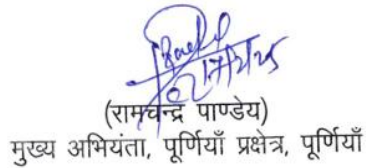 (रामचन्द्र पाण्डेय)
मुख्य अभियंता, पूर्णियाँ प्रक्षेत्र, पूर्णियाँ